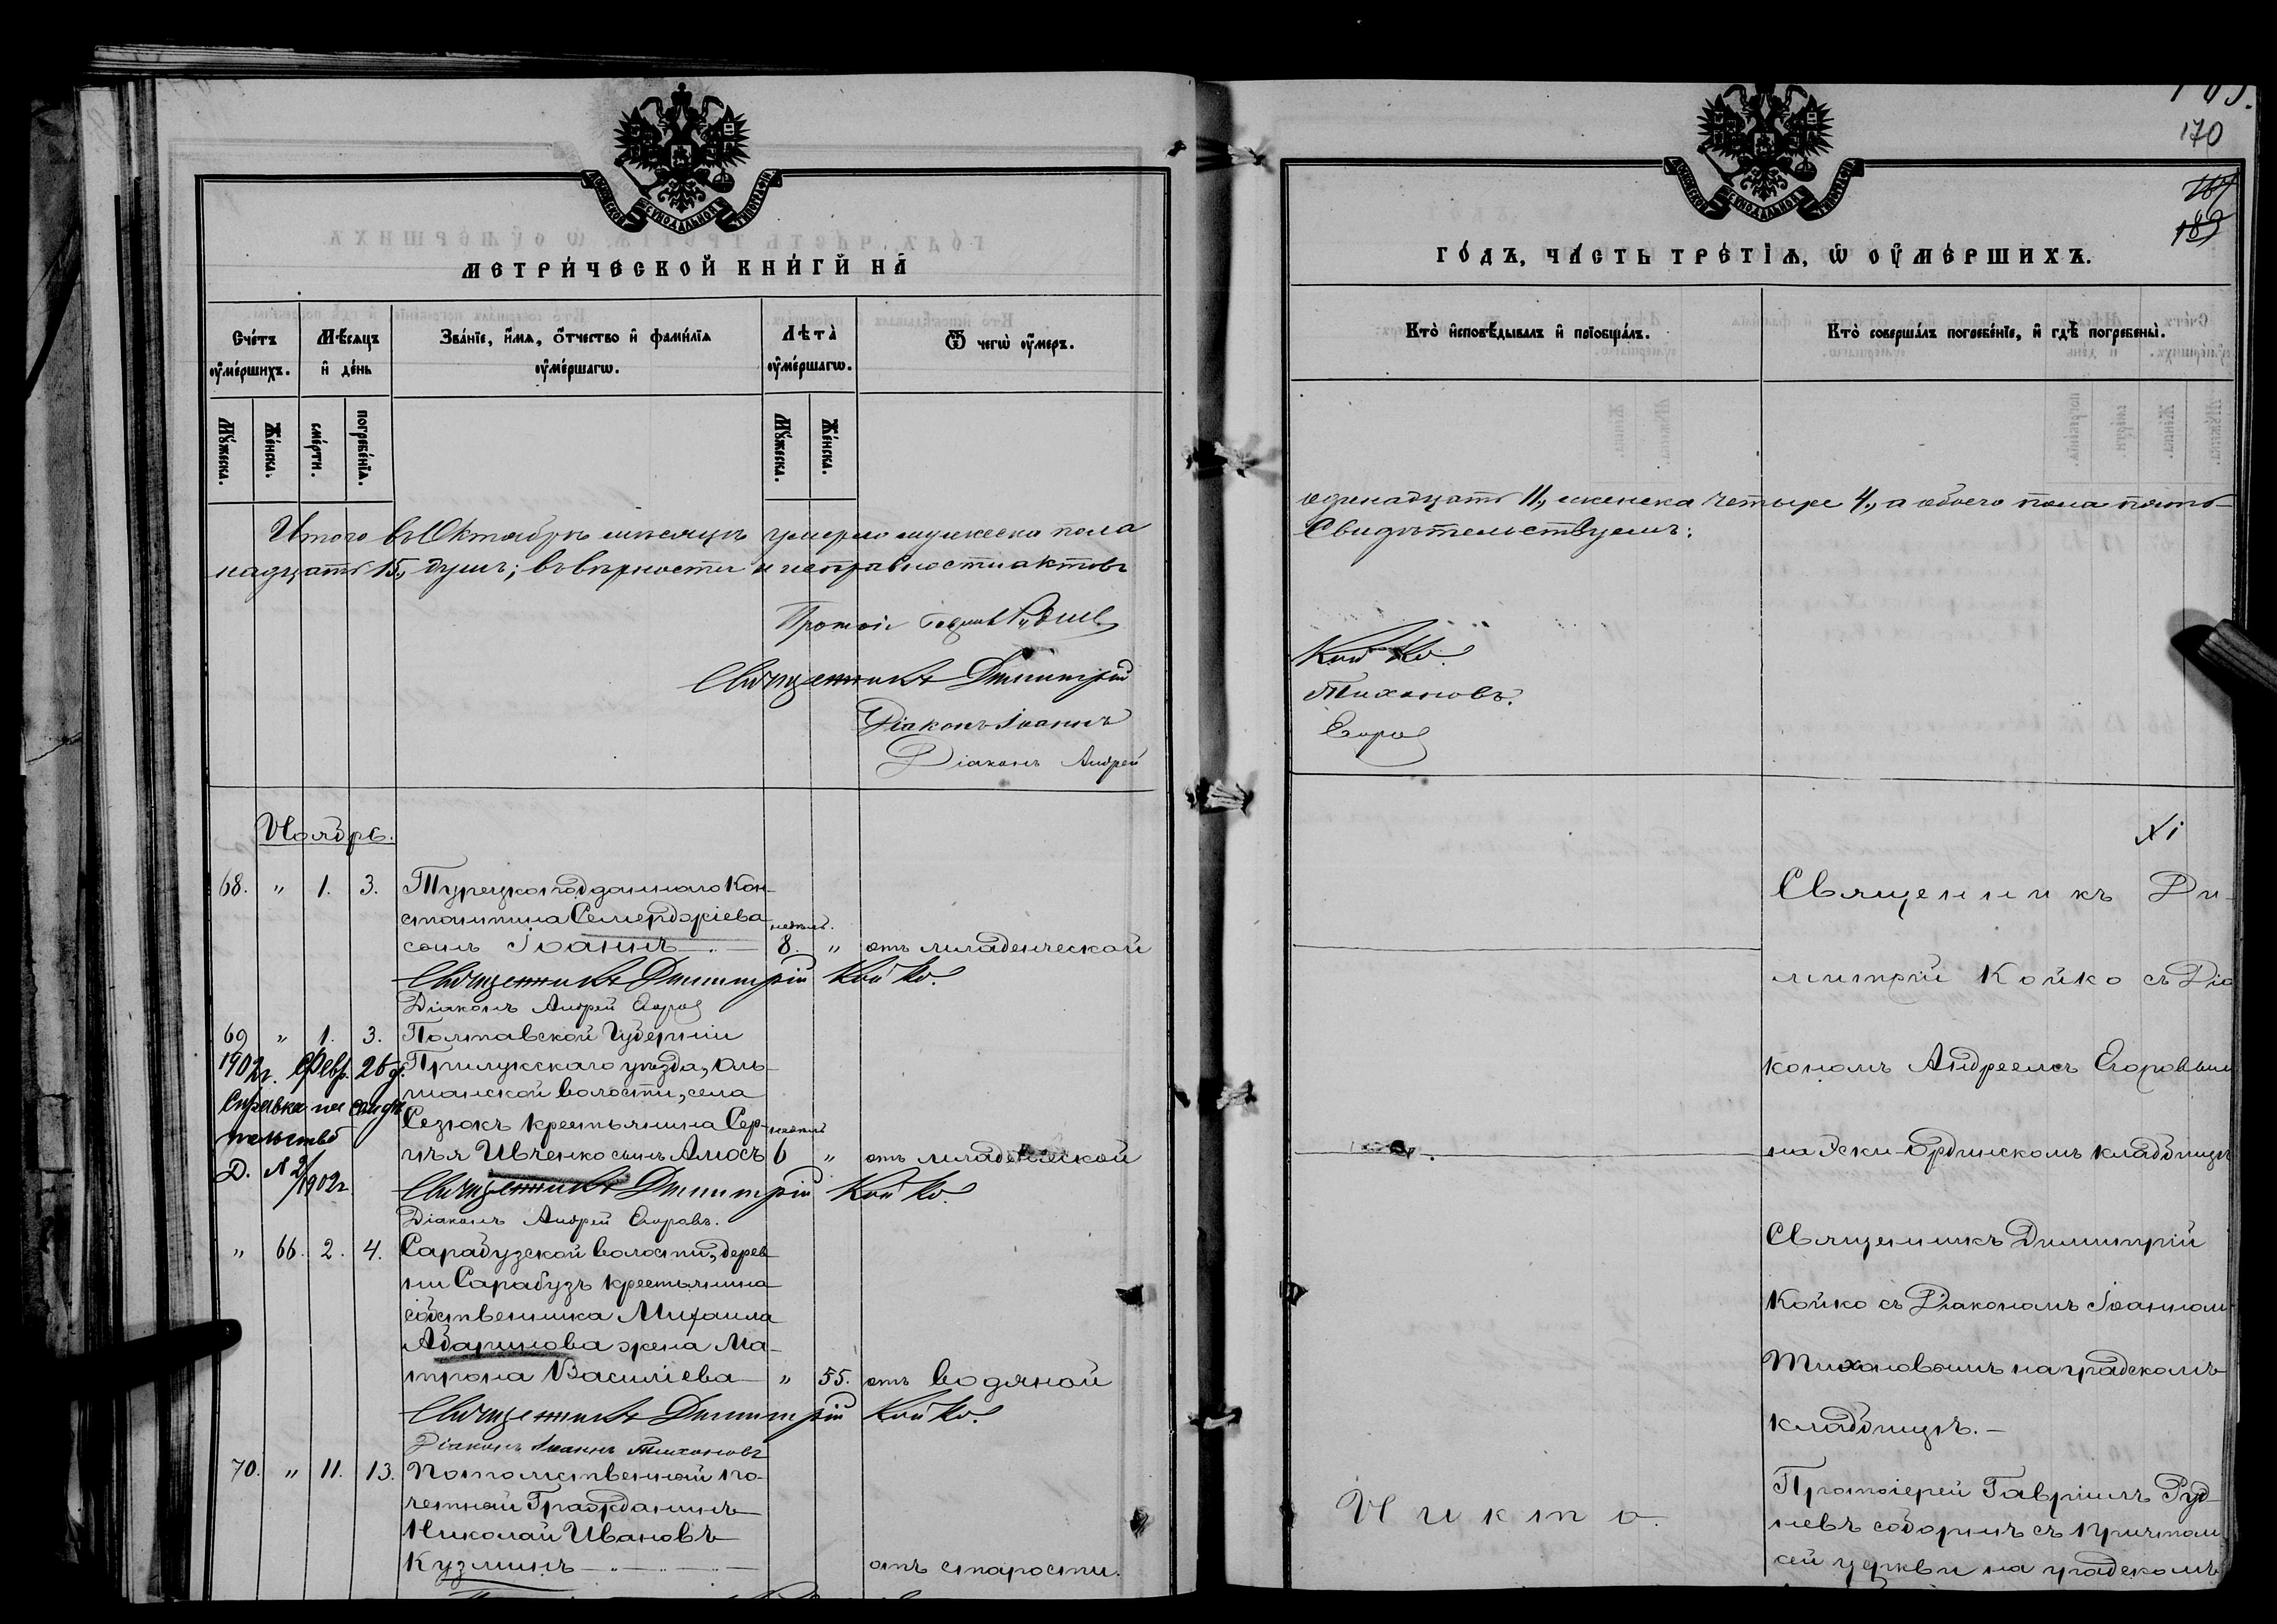 МОСКОВСКОЙ СѴНОДАЛЬНОЙ ТИПОГРАФІИ
МЕТРИ́ЧЕСКОЙ КНИ́ГИ НА̀
Сче́тъ ᲂу҆ме́ршихъ.
Мѣ́сяцъ и҆ де́нь
Зва́нїе, и҆́мя, ѻ҆́тчество и҆ фами́лїя ᲂу҆ме́ршагѡ.
Лѣта̀ ᲂу҆ме́ршагѡ.
Ѿ чегѡ̀ ᲂу҆́меръ.
Му́жеска.
Же́нска.
сме́рти.
погребе́нїя.
Му́жеска.
Же́нска.
Итого въ Октябрѣ мѣсяцѣ умерло мужеска пола
надцать 15, душъ; въ вѣрности и исправности актовъ
Протоі
Священникъ Димитрій
Діаконъ Іоаннъ
Діаконъ Андрей
Ноябрь.
68. " 1. 3. Турецкоподданнаго Кон-
стантина Семерджіева недѣль.
сынъ Іоаннъ 8. " отъ младенческой
Священникъ Димитрій Койко.
Діаконъ Андрей Егоров
69 " 1. 3. Полтавской Губерніи
1902г. Февр. 26 д. Прилукскаго уѣзда, Оль-
шанской волости, села
Справка на свидѣ
Сезюкъ крестьянина Сер- недѣль
тельство
гѣя Ивченко сынъ Амосъ 6 " отъ младенческой
Д. № 2/1902г
Священникъ Димитрій Койко.
Діаконъ Андрей Егоровъ.
" 66. 2. 4. Сарабузской волости, дерев
ни Сарабузъ крестьянина
собственника Михаила
Абаринова жена Ма-
трона Василіева " 55. отъ водяной
Священникъ Димитрій Койко.
Діаконъ Іоаннъ Тихоновъ
70. " 11. 13. Потомственный по-
четный Гражданинъ
Николай Ивановъ
Кузминъ отъ старости.
170
167
183
МОСКОВСКОЙ СѴНОДАЛЬНОЙ ТИПОГРАФІИ
ГО́ДЪ, ЧА́СТЬ ТРЕ́ТЇЯ, Ѡ҆ ОУ҆МЕ́РШИХЪ.
Кто̀ и҆сповѣ́дывалъ и҆ прїобща́лъ.
Кто̀ соверша́лъ погребе́нїе, и҆ гдѣ̀ погребены̀.
одинадцать 11, женска четыре 4, а обоего пола пять-
Свидѣтельствуемъ:
Койко.
Тихоновъ.
Егоров
XI
Священникъ Ди-
митрій Койко съ Діа
кономъ Андреемъ Егоровым
на Эски-Ординскомъ кладбищѣ
Священникъ Димитрій
Койко съ Діакономъ Іоанном
Тихоновымъ на градскомъ
кладбищѣ.-
Никто.
Протоіерей Гавріилъ Руд
невъ соборнѣ съ причтом
сей церкви на градскомъ